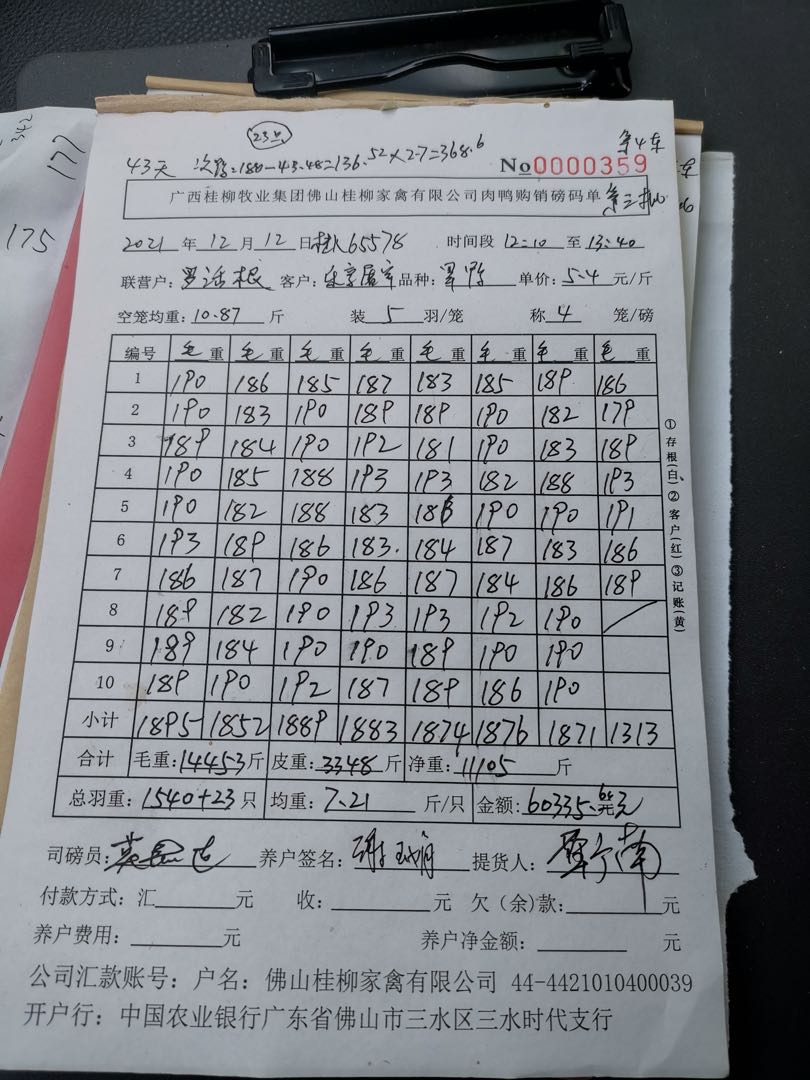 23只
43天 次鸭:180-43.48=136.52×2.7=368.6
第4车
No0000359
广西桂柳牧业集团佛山桂柳家禽有限公司肉鸭购销磅码单 第三批
2021 年 12 月 12 日 65578 时间段 12:10 至 13:40
联营户: 客户: 品种: 单价: 5.4 元/斤
空笼均重: 10.87 斤 装 5 羽/笼 称 4 笼/磅
编号 毛重 毛重 毛重 毛重 毛重 毛重 毛重 毛重
1 190 186 185 187 183 185 189 186
2 190 183 190 189 189 190 182 179
3 189 184 190 192 181 190 183 189
4 190 185 188 193 193 182 188 193
5 190 182 188 183 186 190 190 191
6 193 189 186 183. 184 187 183 186
7 186 187 190 186 187 184 186 189
8 189 182 190 193 193 192 190
9 189 184 190 190 189 190 190
10 189 190 192 187 189 186 190
小计 1895 1852 1889 1883 1874 1876 1871 1313
合计 毛重: 14453 斤 皮重: 3348 斤 净重: 11105 斤
总羽重: 1540+23 只 均重: 7.21 斤/只 金额: 60335. 元
司磅员: 养户签名: 提货人:
付款方式: 汇 元 收: 元 欠(余)款: 元
养户费用: 元 养户净金额: 元
公司汇款账号: 户名: 佛山桂柳家禽有限公司 44-4421010400039
开户行: 中国农业银行广东省佛山市三水区三水时代支行
①存根(白)、②客户(红)③记账(黄)
342
177
175